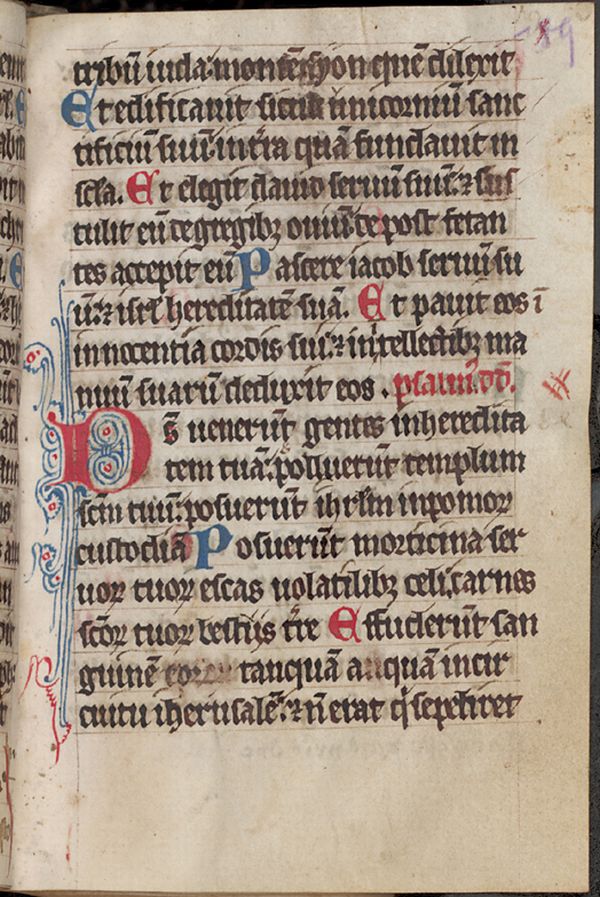 89
tribū iuda. montē syon quē dilexit
Et edificauit sicut unicorniū sanc
tificiū suū: in t̄ra quā fundauit in
sc̄la. Et elegit dauid seruū suū: ⁊ sus
tulit eū de gregibꝫ ouiū: de post fetan
tes accepit eū Pascere iacob seruū su
ū: ⁊ isrl̄ hereditatē suā. Et pauit eos ī
innocentia cordis sui: ⁊ intellectibꝫ ma
nuū suarū deduxit eos. psalm9 dd̄.
Ds̄ uenerūt gentes in heredita
tem tuā: polluerūt templum
scm̄ tuū: posuerūt ihrlm̄ in pomoꝝ
custodiā Posuerūt morticina ser
uoꝝ tuoꝝ escas uolatilibꝫ celi: carnes
sc̄oꝝ tuoꝝ bestijs t̄re Effuderūt san
guinē tanquā aquam in cir
cuitu iherusalē: ⁊ n̄ erat q̇ sepeliret